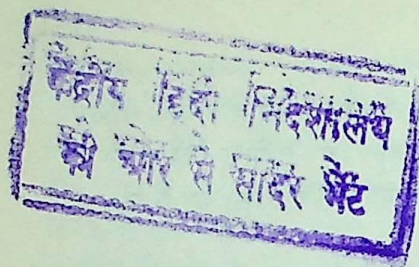 केंद्रीय हिंदी निदेशालय
की ओर से सादर भेंट